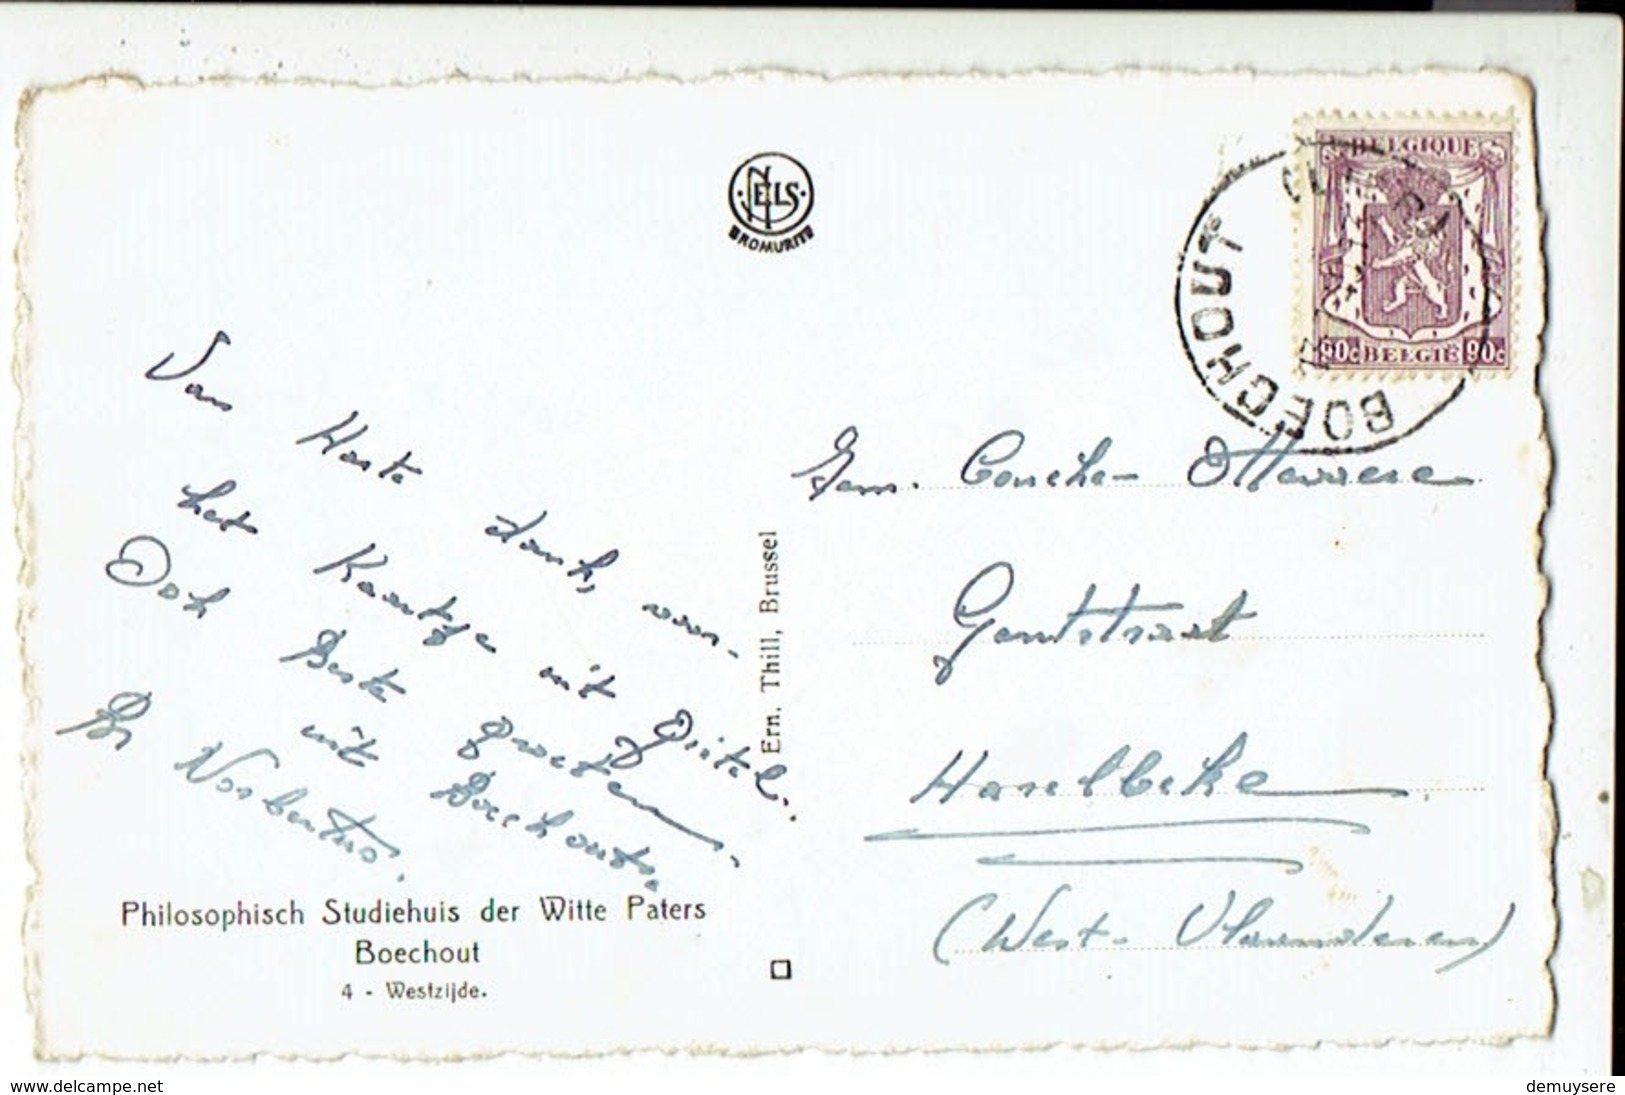 NELS
BROMURITE
BELGIQUE
90c BELGIË 90c
BOECHOUT
Van Harte dank, voor
het Kaartje uit
Ook Beste groeten
uit Boechout.
Br Norbertus.
Philosophisch Studiehuis der Witte Paters
Boechout
4 - Westzijde.
Ern. Thill, Brussel
Fam. Couche- Ottevaere
Gentstraat
Harelbeke
(West-Vlaanderen)
www.delcampe.net
demuysere